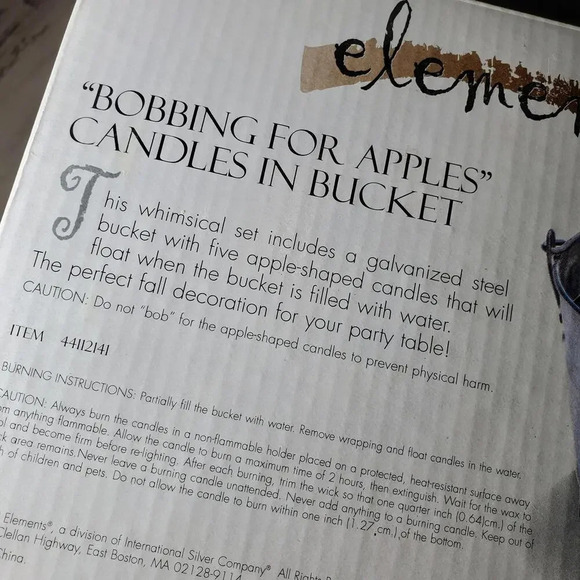 eleme
“BOBBING FOR APPLES”
CANDLES IN BUCKET
This whimsical set includes a galvanized steel
bucket with five apple-shaped candles that will
float when the bucket is filled with water.
The perfect fall decoration for your party table!
CAUTION: Do not “bob” for the apple-shaped candles to prevent physical harm.
ITEM 44112141
BURNING INSTRUCTIONS: Partially fill the bucket with water. Remove wrapping and float candles in the water.
CAUTION: Always burn the candles in a non-flammable holder placed on a protected, heat-resistant surface away
om anything flammable. Allow the candle to burn a maximum time of 2 hours, then extinguish. Wait for the wax to
ol and become firm before re-lighting. After each burning, trim the wick so that one quarter inch (0.64)cm.) of the
ck area remains. Never leave a burning candle unattended. Never add anything to a burning candle. Keep out of
h of children and pets. Do not allow the candle to burn within one inch (1.27 cm.) of the bottom.
Elements®, a division of International Silver Company® All Rights
Clellan Highway, East Boston, MA 02128-9114
China.